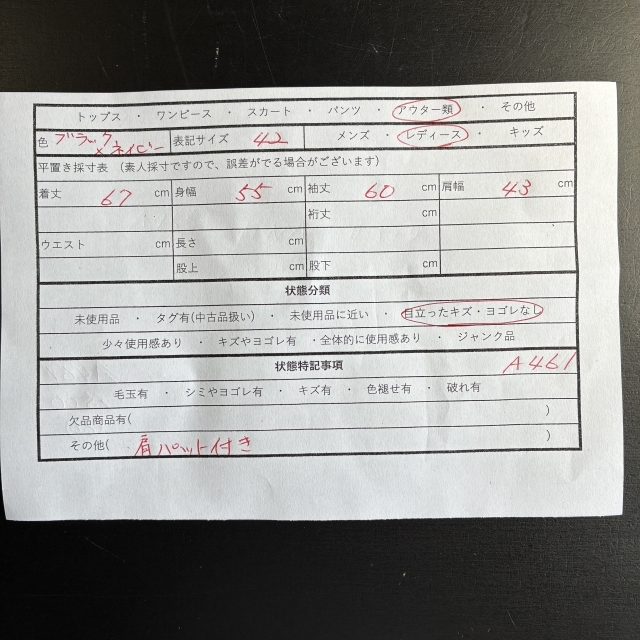 トップス ・ ワンピース ・ スカート ・ パンツ ・ アウター類 ・ その他
色 ブラック×ネイビー 表記サイズ 42 メンズ ・ レディース ・ キッズ
平置き採寸表 (素人採寸ですので、誤差がでる場合がございます)
着丈 67 cm 身幅 55 cm 袖丈 60 cm 肩幅 43 cm
裄丈 cm
ウエスト cm 長さ cm
股上 cm 股下 cm
状態分類
未使用品 ・ タグ有(中古品扱い) ・ 未使用品に近い ・ 目立ったキズ・ヨゴレなし
少々使用感あり ・ キズやヨゴレ有 ・全体的に使用感あり ・ ジャンク品
状態特記事項 A461
毛玉有 ・ シミやヨゴレ有 ・ キズ有 ・ 色褪せ有 ・ 破れ有
欠品商品有( )
その他( 肩パット付き )